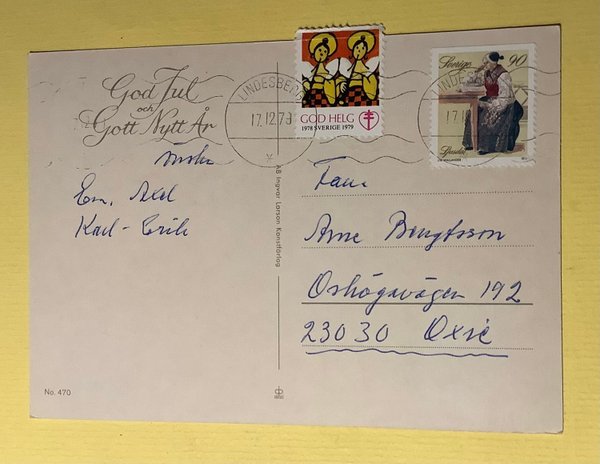 God Jul
och
Gott Nytt År
önskar
Eva, Axel
Karl-Erik
No. 470
AB Ingvar Larson Konstförlag
LINDESBERG
17.12.79
GOD HELG
1978 SVERIGE 1979
Sverige 90
Fam.
Arne Bengtsson
Oshögavägen 192
23030 Oxie